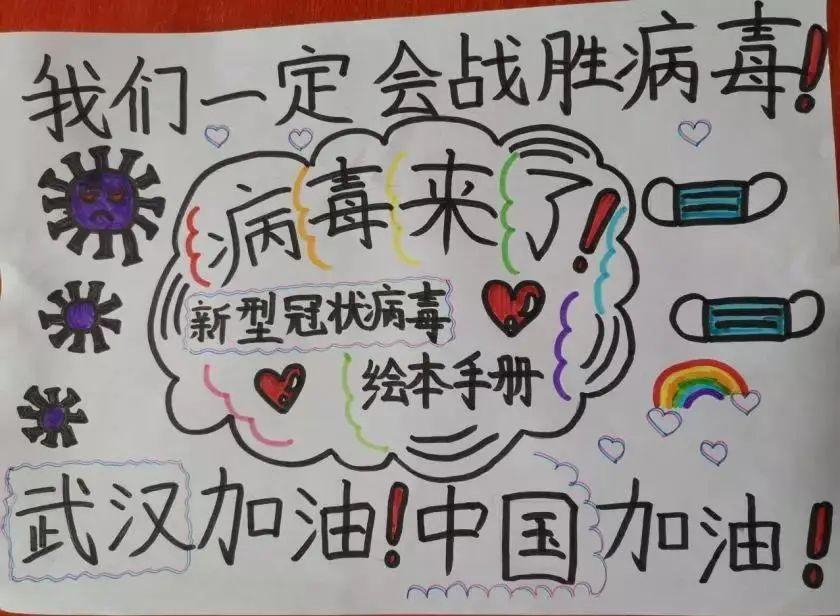 我们一定会战胜病毒!
病毒来了!
新型冠状病毒
绘本手册
武汉加油!中国加油!